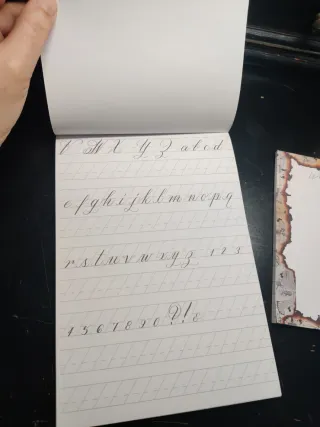 V W X Y Z a b c d
e f g h i j k l m n o p q
r s t u v w x y z 1 2 3
4 5 6 7 8 9 0 ? ! &